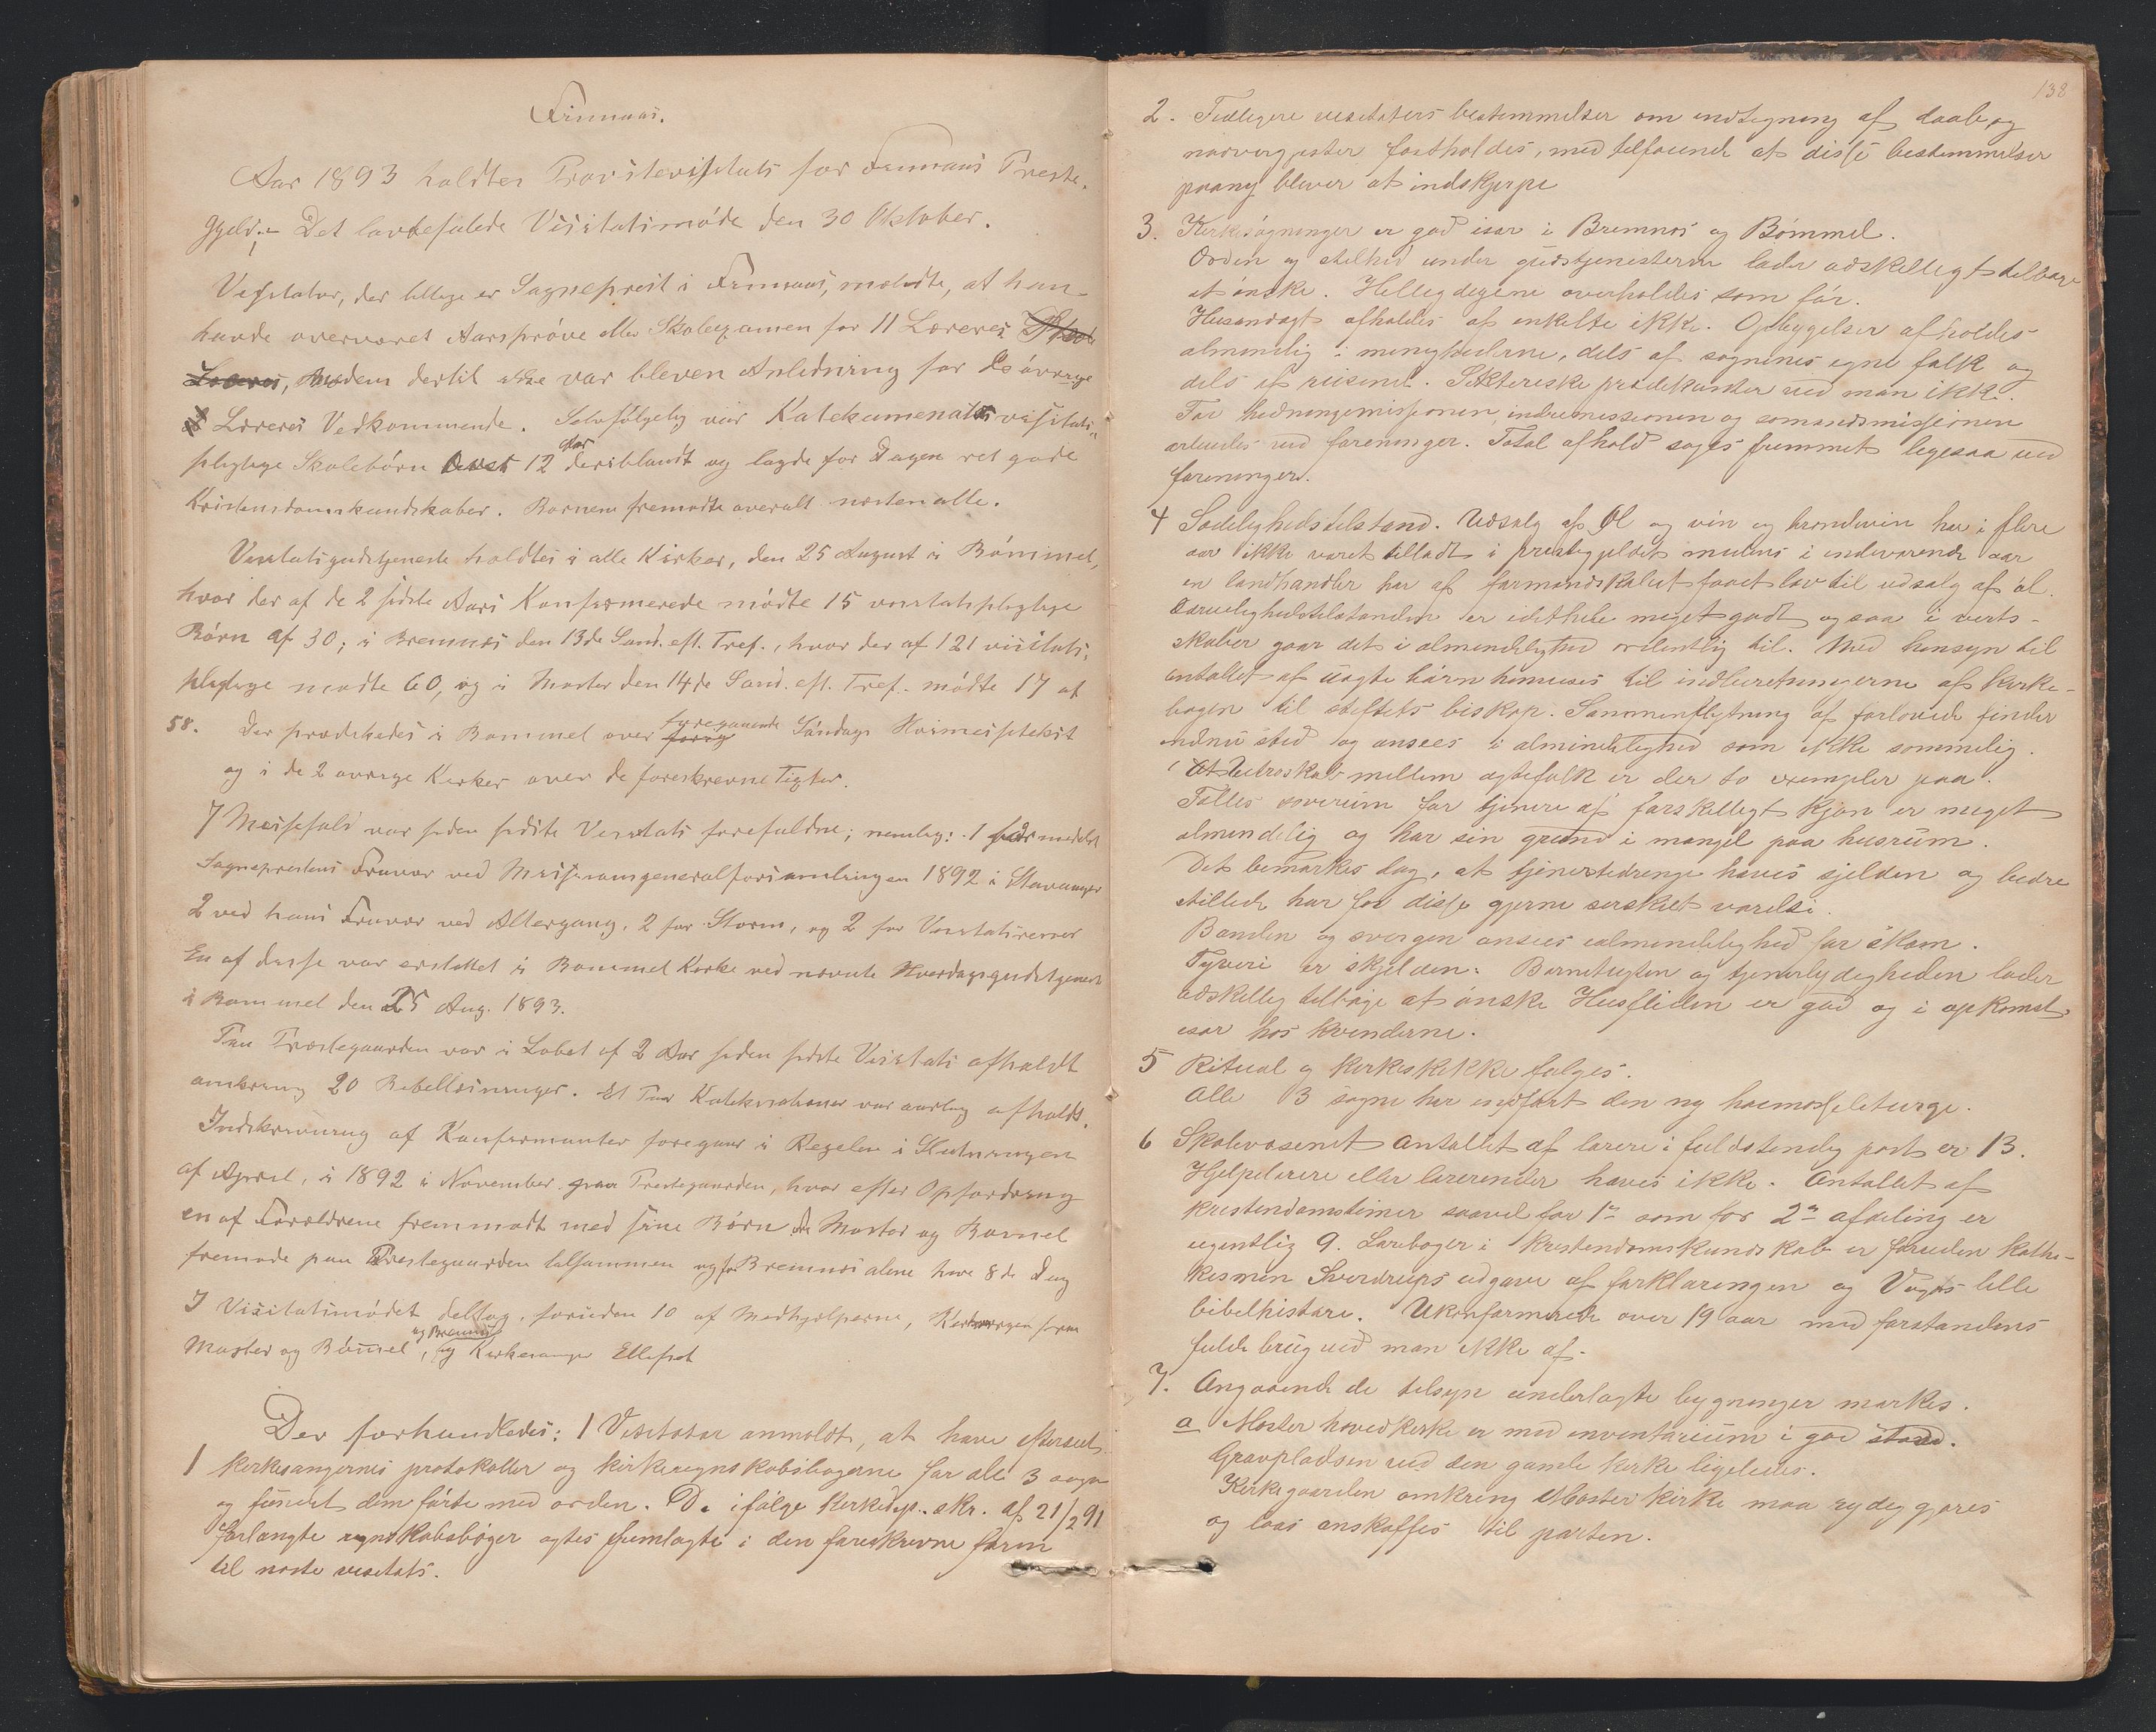 Finnaas.
Aar 1893 holdtes Provstevisitats for Finnaas Preste-
gjeld. Det lovbefalede Visitatsmøde den 30 Oktober.
Visitator, der tillige er Sogneprest i Finnaas, meldte, at han
havde overværet Aarsprøve eller Skoleexamen for 11 Læreres
Læreres, medens dertil ikke var bleven Anledning for de øvrige
Læreres Vedkommende. Selvfølgelig var Katekumenater visitats-
pligtige Skolebørn over 12 Aar deriblandt og lagde for Dagen ret gode
Kristendomskundskaber. Børnene fremmødte overalt næsten alle.
Visitatsgudstjeneste holdtes i alle Kirker, den 25 August i Bömmel,
hvor der af de 2 sidste Aars Konfirmerede mødte 15 visitatspligtige
Börn af 30; i Bremnes den 13de Sönd. eft. Tref., hvor der af 121 visitats-
pligtige mødte 60, og i Moster den 14de Sönd. eft. Tref. mødte 17 af
58. Der prædikedes i Bømmel over foregaaende Söndags Høimessetekst
og i de 2 øvrige Kirker over de foreskrevne Tegter.
7 Messefald var siden sidste Visitats forefaldne; nemlig: 1 formedelst
Sogneprestens Fravær ved Missionsgeneralforsamlingen 1892 i Stavanger
2 ved hans Fravær ved Altergang, 2 for Storm, og 2 for Visitatsreiser
En af disse var erstattet i Bømmel Kirke ved nævnte Hverdagsgudstjeneste
i Bømmel den 25 Aug. 1893.
Paa Præstegaarden var i Løbet af 2 Aar siden sidste Visitats afholdt
omkring 20 Bibellæsninger. Et Par Katekisationer var aarlig afholdt.
Indskrivning af Konfirmanter foregaar i Regelen i Slutningen
af April, i 1892 i November paa Prestegaarden, hvor efter Opfordring
en af Forældrene fremmødt med sine Börn fra Moster og Bømel
fremøde paa Prestegaarden tilsammen og fra Bremnes alene hver 8de Dag
I Visitatsmödet deltog, foruden 10 af Medhjelperne, Kirkesangerne for
Moster og Bömel, og Bremnes og Kirkesanger Ellefset
Der forhandledes: 1 Visitator anmeldt, at have efterseet
1 kirkesangernes protokoller og kirkeregnskabsbøgerne for alle 3 sogne
og fundet dem førte med orden. De ifølge Kirkedep. skr. af 21/2 91
forlangte regnskabsbøger agtes fremlagte i den foreskrevne form
til neste visitats.
138
2. Tidligere visitatsers bestemmelser om indtegning af daab og
nadvergjester fastholdes, med tilføiende at disse bestemmelser
paany bliver at indskjerpe
3. Kirkesøgningen er god især i Bremnes og Bömmel.
Orden og stilhed under gudstjenesterne lader adskilligt tilbage
at ønske. Helligdagene overholdes som før.
Husandagt afholdes af enkelte ikke. Opbyggelser afholdes
almindelig i menighederne, dels af sognenes egne folk og
dels af reisende. Sekteriske prædikanter ved man ikke.
For hedningemissionen, indremissionen og sømandsmissionen
arbeides ved foreninger. Total afhold søges fremmet ligesaa ved
foreninger.
4 Sædelighedstilstand. Udsalg af Øl og vin og brændevin har i flere
aar ikke været tilladt i prestegjeldet mens i indeværende aar
en landhandler har af formandskabet faaet lov til udsalg af öl.
Ædruelighedstilstanden er i det hele meget godt ogsaa i verts-
skaber gaar det i almindelighed ordentlig til. Med hensyn til
antallet af uægte børn henvises til indberetningerne af kirke-
bogen til stiftets biskop. Sammenflytning af forlovede finder
endnu sted og ansees i almindelighed som ikke sømmelig.
Utroskab mellem ægtefolk er der to exempler paa.
Fælles soverum for tjenere af forskelligt kjøn er meget
almindelig og har sin grund i mangel paa husrum.
Det bemærkes dog, at tjenestedrenge haves sjelden og bedre
stillede har for disse gjerne særskilt værelse.
Banden og svergen ansees i almindelighed for skam.
Tyveri er skjelden. Børnetugten og tjenerlydigheden lader
adskillig tilbage at ønske Husfliden er god og i opkomst,
især hos kvinderne.
5 Ritual og kirkeskikke følges.
Alle 3 sogne har indført den ny høimesseliturgi.
6 Skolevæsenet Antallet af lærere i fuldstendig post er 13.
Hjelpelærere eller lærerinder haves ikke. Antallet af
kristendomstimer saavel for 1ste som for 2den afdeling er
ugentlig 9. Lærebøger i kristendomskundskab er foruden kathe-
kismen Sverdrups udgave af forklaringen og Vogts lille
bibelhistorie. Ukonfirmerede over 19 aar med forstandens
fulde brug ved man ikke af.
7. Angaaende de tilsyn underlagte bygninger mærkes.
a Moster hovedkirke er med inventarium i god stand.
Gravpladsen ved den gamle kirke ligeledes.
Kirkegaarden omkring Moster kirke maa rydiggjøres
og laas anskaffes til porten.